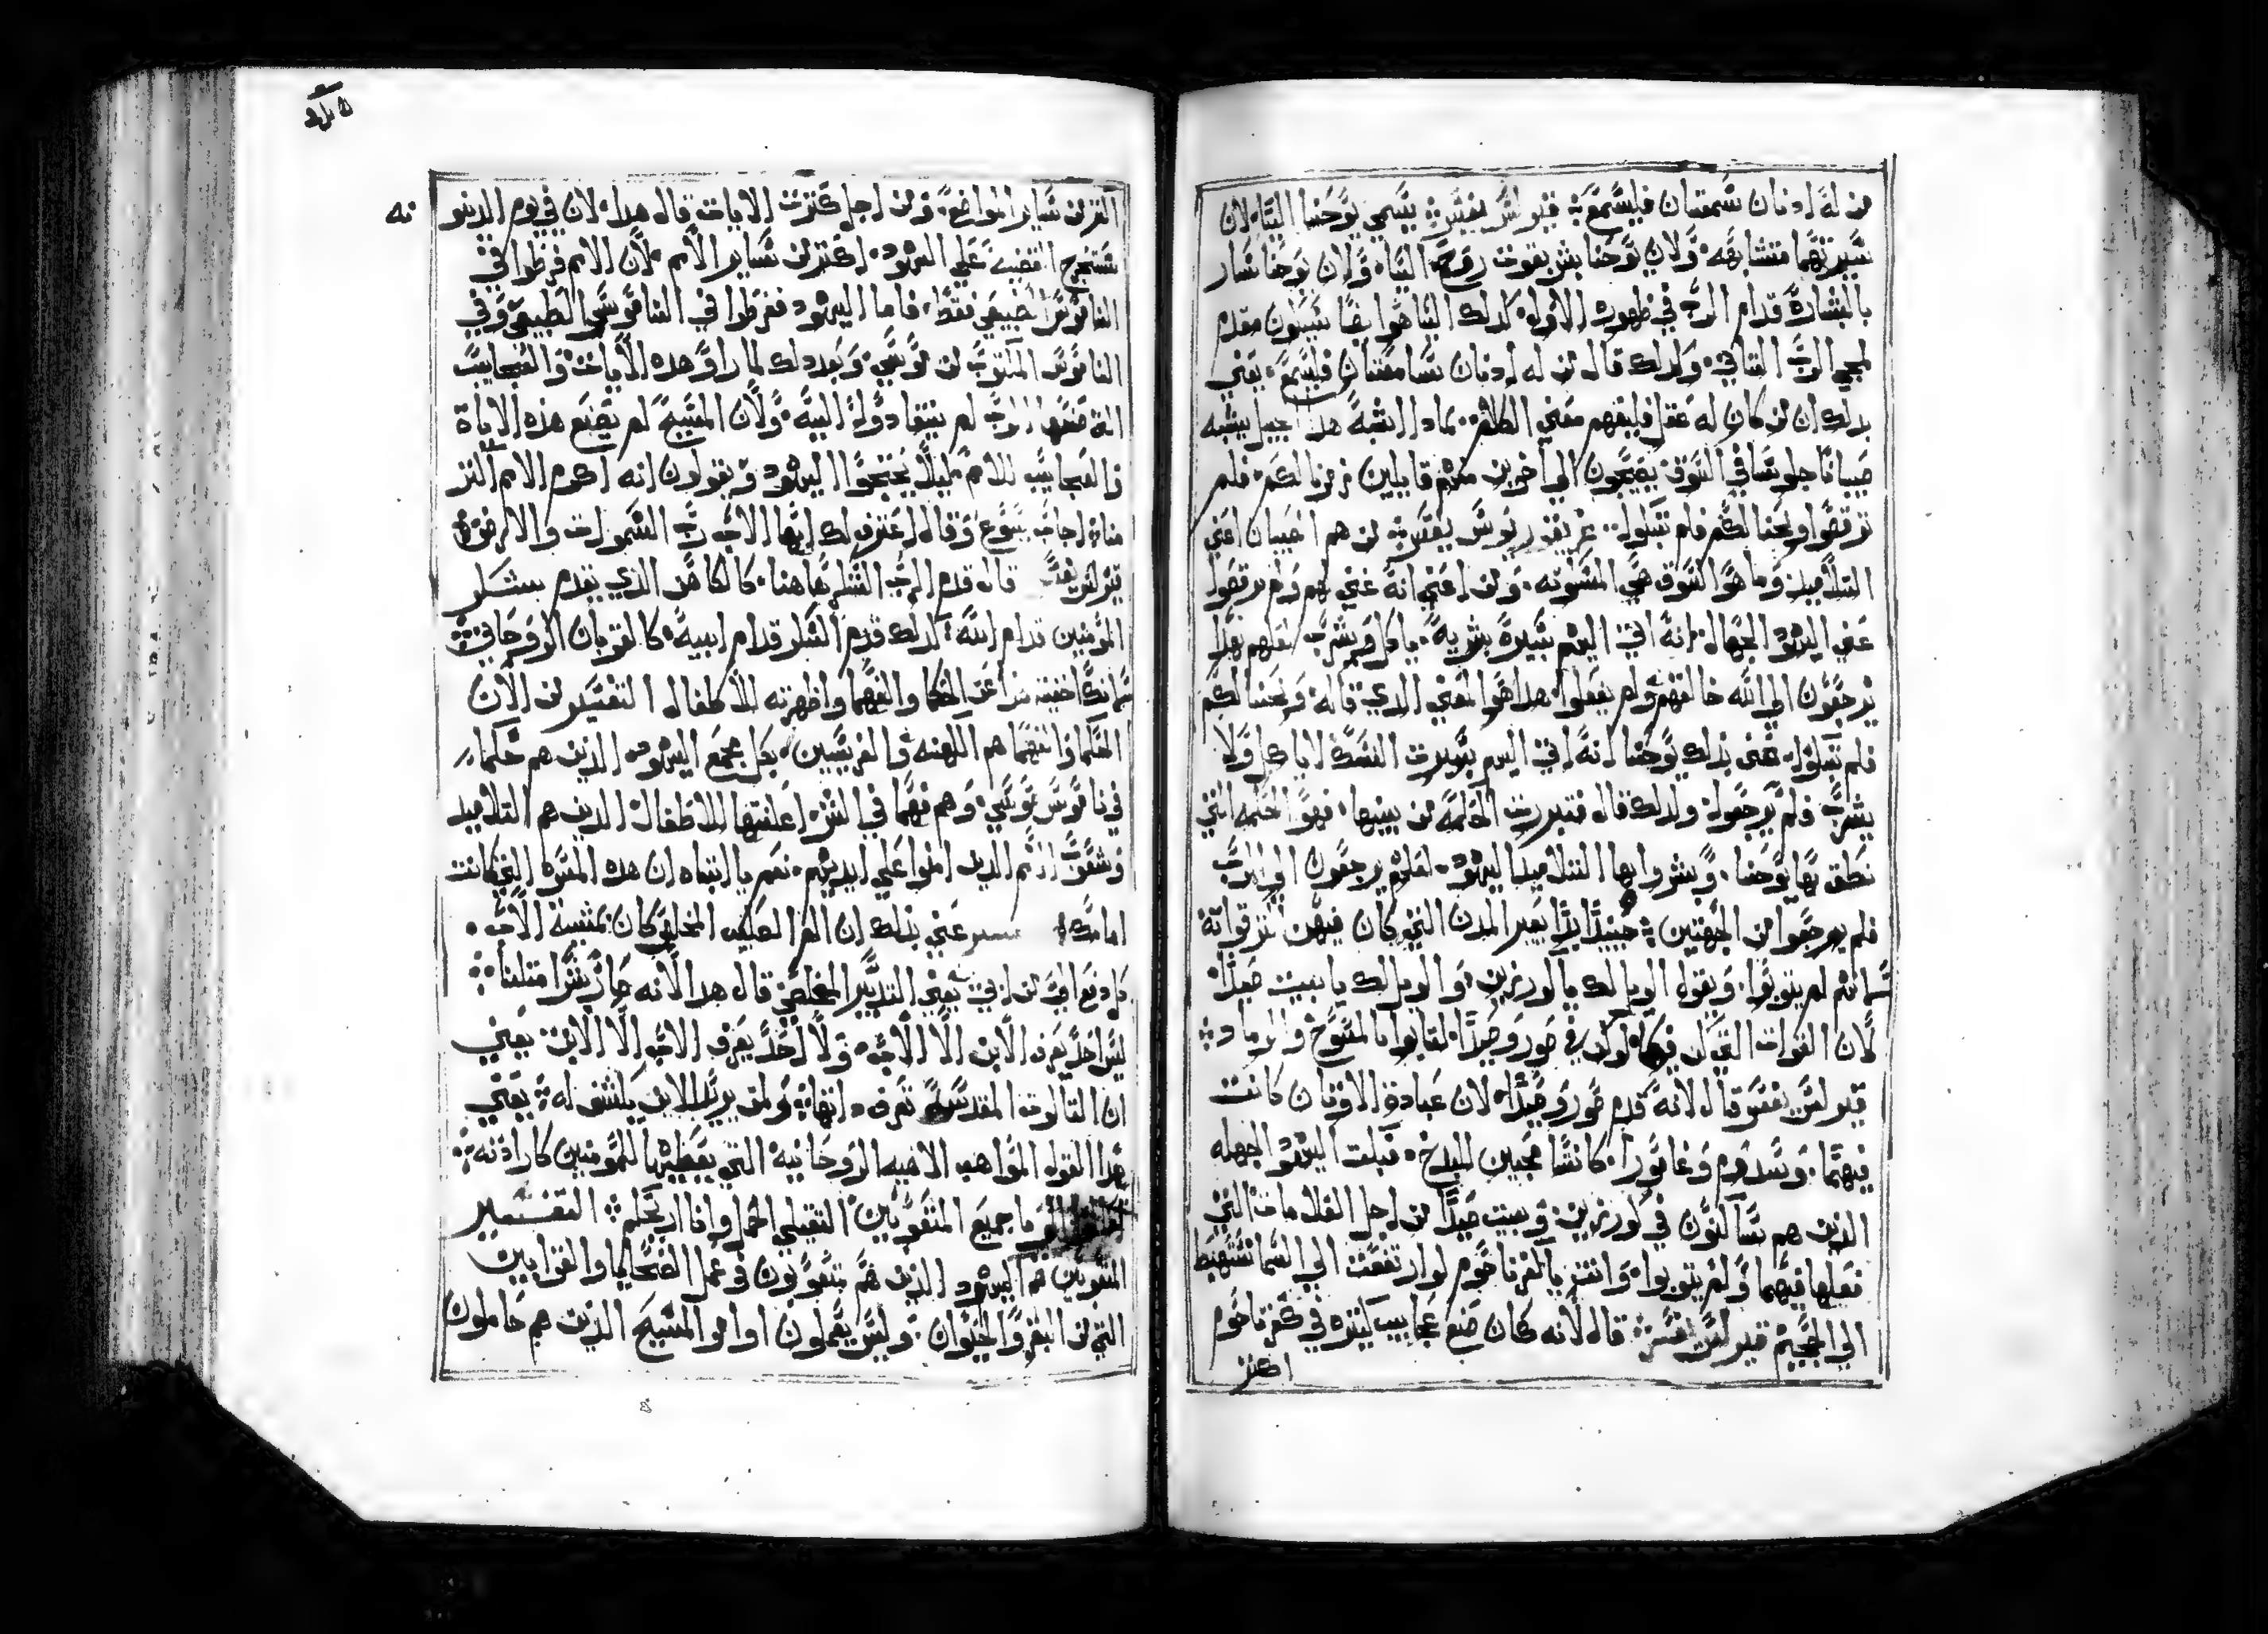 من له ادنان سمعتان فليسمع ❖ قير لس يفسر ❖ يسمي يوحنا اليا لان
سيرتهما متشابهه ولان يوحنا بشر بقوت روح اليا ولان يوحنا سار
بالبشاره قدام الرب في ظهوره الاول كدلك اليا هوا ايضا مقدم
لمجي الرب التاني ولدلك قال من له ادنان سامعتان فليسمع يعني
بدلك ان من كان له عقل فليفهم معني الكلام بمادا اشبه هدا الجيل يشبه
صبيانا جلوسا في السوق يصيحون الي اخرين منهم قايلين زمرنا لكم فلم
ترقصوا ونحنا لكم فلم تبكوا يفسر من هم الصبيان اعني
التلاميد وما هوا السوق هي المسكونه ومن اعني انه غني لهم ولم يرقصوا
عني اليهود الجهال انه اتي اليهم بسيرة بشريه ياكل ويشرب لعلهم بهدا
يرجعون الي الله خالقهم ولم يفعلوا هدا هوا المعني الدي قاله ونحنا لكم
فلم تبكوا عني بدلك يوحنا انه اتي اليهم بسيرت النسك لا ياكل ولا
يشرب فلم يرجعوا ولدلك قال فتبررت الحكمه من بنيها فهوا الحكمه التي
نطق بها يوحنا وبشروا بها التلاميد اليهود لعلهم يرجعون الي الرب
فلم يرجعوا من الجهتين ❖ حينيدا بدا يعير المدن التي كان فيهن اكتر قواته
لانهم لم يتوبوا ويقول الويل لك يا كورزين والويل لك يا بيت صيدا
لان القوات التي كن فيكما لو كن في صور وصيدا لتابوا بالمسوح والرماد ❖
قير لس يفسر قال لانه قدم صور وصيدا لان عبادة الاوتان كانت
فيهما وسدوم وغامورا كانتا محبين للبدخ فبكت اليهود الجهله
الدين هم ساكنون في كورزين وبيت صيدا من اجل العلامات التي
فعلها فيهما ولم يتوبوا وانت يا كفرناحوم لو ارتفعت الي السما ستهبط
الي الجحيم قير لس يفسر ❖ قال لانه كان صنع عجايب كتيره في كفرناحوم
اكتر
نه
اكتر من ساير المواضع ومن اجل كترت الايات قال هدا لان في يوم الدينونه
ستخرج القضيه علي اليهود اكتر من ساير الامم لان الامم فرطوا في
الناموس الطبيعي فقط فاما اليهود ففرطوا في الناموس الطبيعي وفي
الناموس المكتوب من موسي وبعد دلك لما راوا هده الايات والعجايب
التي صنعها الرب لم ينقادوا اليه ولان المسيح لم يصنع هذه الاياة
والعجايب للامم كيلا يحتجوا اليهود ويقولون انه اكرم الامم اكتر
منا اجاب يسوع وقال اعترف لك ايها الاب رب السموات والارض ❖
قير لس يفسر قال قدم الرب الشكر هاهنا كالكاهن الذي يقدم شكر
المؤمنين قدام الله كدلك قدم الشكر قدام ابيه كالقربان الروحاني ❖
لانك اخفيت هدا عن الحكما والفهما واظهرته للاطفال التفسير من الان
الحكما والفهما هم الكهنه والفريسيين بكل مجمع اليهود الذين هم حكما
في ناموس موسي وهم فهما في الشر اعلنتها للاطفال الدين هم التلاميد
وشعوب الامم الدين امنوا علي ايديهم نعم يا ابتاه ان هده المسره التي كانت
امامك عني بدلك ان المخلص كان بمشية الاب
كل دفع الي من ابي يعني التدبير المخلص قال هدا لانه صار بشرا متلنا ❖
ليس احد يعرف الابن الا الاب ولا احد يعرف الاب الا الابن يعني
ان التالوت المقدس تعرف داتها ❖ ولمن يريد الابن يكشف له ❖ يعني
هدا القول المواهب الالهيه الروحانيه التي يعطيها للمومنين كارادته ❖
تعالوا الي يا جميع المتعوبين التقيلي الحمل وانا اريحكم ❖ التفسير
المتعوبين هم اليهود الذين هم يتعوبون في عمل الضحايا والقرابين
التي من البقر والحيوان وليس يعملون اوامر المسيح الذين هم حاملون